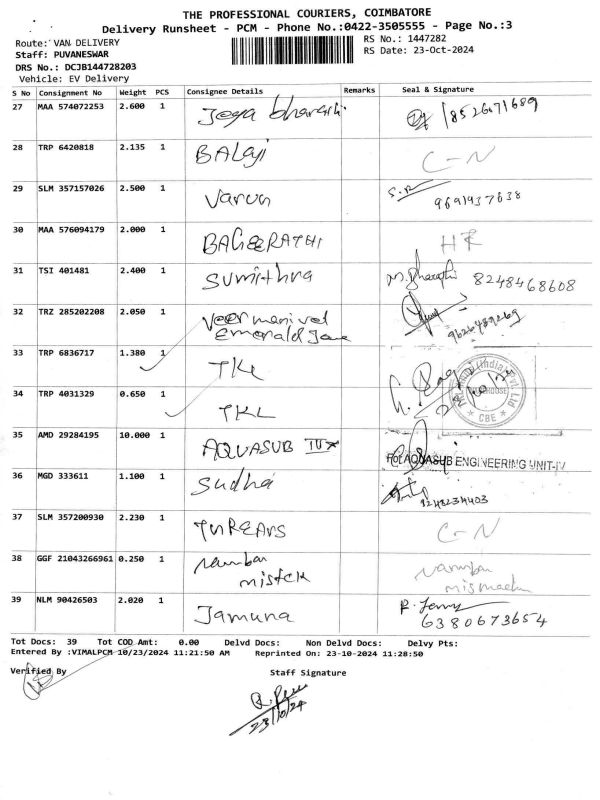 THE PROFESSIONAL COURIERS, COIMBATORE
Delivery Runsheet - PCM - Phone No.:0422-3505555 - Page No.:3
Route: VAN DELIVERY
RS No.: 1447282
Staff: PUVANESWAR
RS Date: 23-Oct-2024
DRS No.: DCJB144728203
Vehicle: EV Delivery
S No Consignment No Weight PCS Consignee Details Remarks Seal & Signature
27 MAA 574072253 2.600 1 8526071689
28 TRP 6420818 2.135 1 BALaji C-N
29 SLM 357157026 2.500 1 Varun 9691937638
30 MAA 576094179 2.000 1 BAGEERATHI HR
31 TSI 401481 2.400 1 Sumithra 8248468608
32 TRZ 285202208 2.050 1 Veermanivel 9626489269
Emerald
33 TRP 6836717 1.380 1 TKL
34 TRP 4031329 0.650 1 TKL
CBE
35 AMD 29284195 10.000 1 AQUASUB
For AQUASUB ENGINEERING UNIT-IV
36 MGD 333611 1.100 1 Sudha 9248234403
37 SLM 357200930 2.230 1 C-N
38 GGF 21043266961 0.250 1
39 NLM 90426503 2.020 1 Jamuna 6380673654
Tot Docs: 39 Tot COD Amt: 0.00 Delvd Docs: Non Delvd Docs: Delvy Pts:
Entered By :VIMALPCM 10/23/2024 11:21:50 AM Reprinted On: 23-10-2024 11:28:50
Verified By Staff Signature
23/10/24